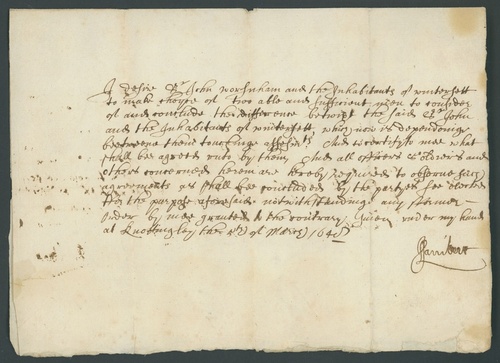 I desire Sr John Worsnham and the Inhabitants of wintersett
to make choyse of two able and sufficient men to consider
of and conclude the difference betwixt the said Sr John
and the Inhabitants of wintersett, which now is dependinge
betweene them touchinge And to certify to mee what
shall be agreed unto by them, And all officers soldiers and
others concerned herein are hereby required to observe such
agreements as shall be concluded by the partyes soe elected
for the purpose aforesaid notwithstandinge any former
order by mee granted to the contrary. Given under my hand
at Knottingley the of March
J Lambert